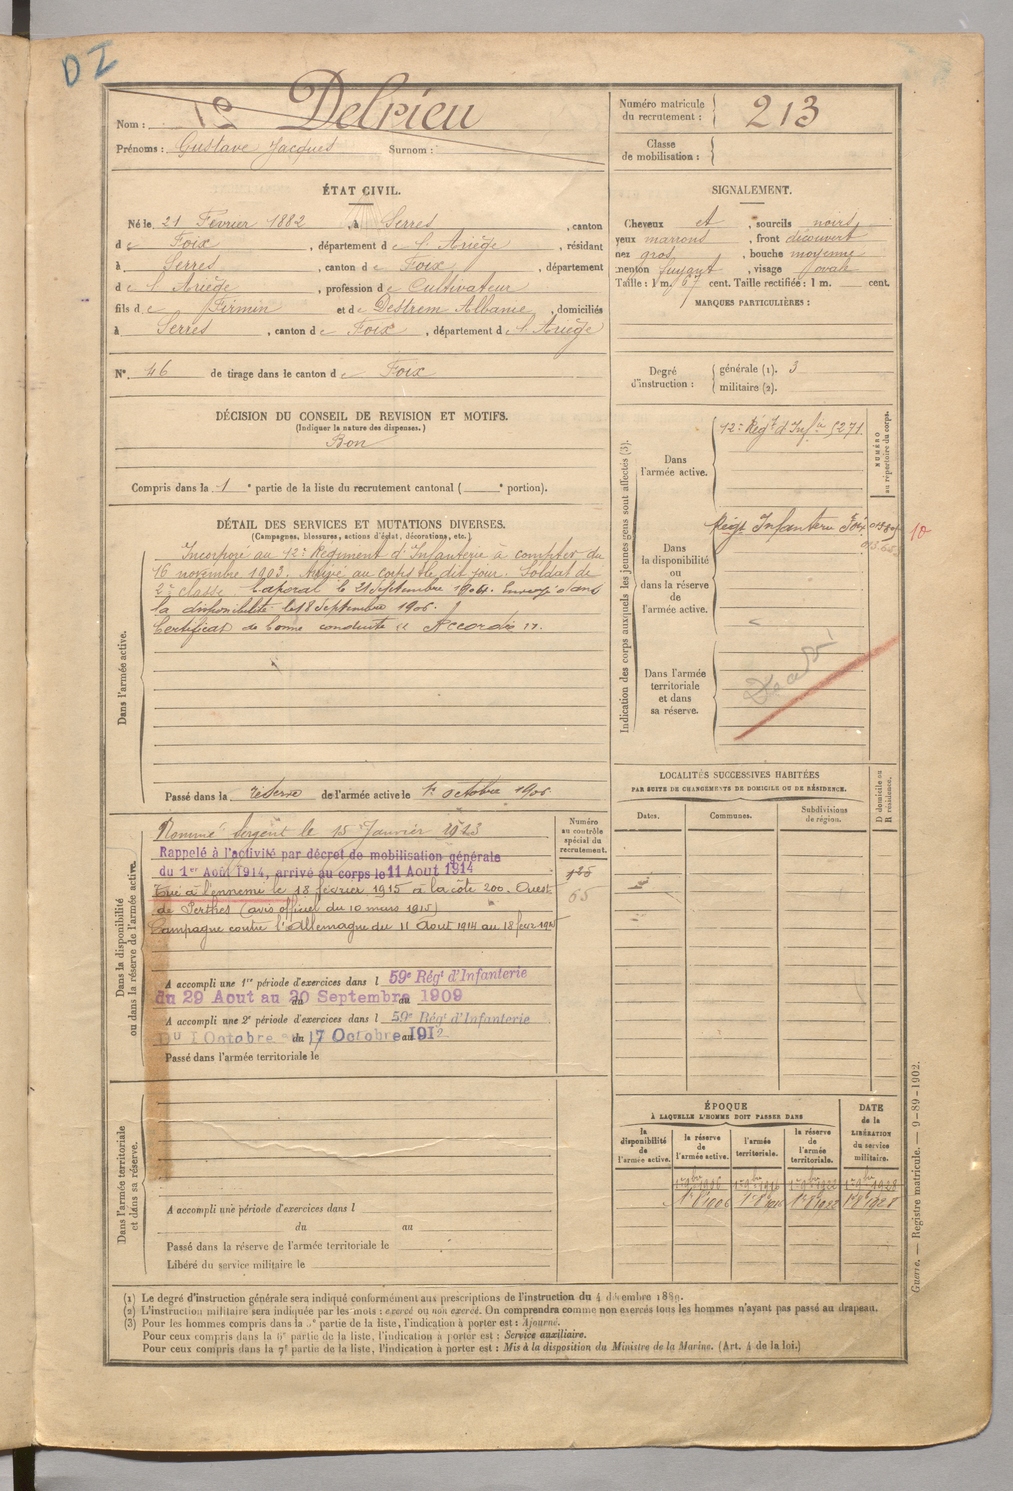 DI
Nom : Delrieu
Prénoms : Gustave Jacques Surnom :
Numéro matricule du recrutement : 213
Classe de mobilisation :
ÉTAT CIVIL.
Né le 21 Février 1882, à Serres, canton
de Foix, département de l'Ariège, résidant
à Serres, canton de Foix, département
de l'Ariège, profession de Cultivateur
fils de Firmin et de Destrem Albanie, domiciliés
à Serres, canton de Foix, département de l'Ariège
N° 46 de tirage dans le canton de Foix
DÉCISION DU CONSEIL DE REVISION ET MOTIFS.
(Indiquer la nature des dispenses.)
Bon
Compris dans la 1e partie de la liste du recrutement cantonal ( e portion).
SIGNALEMENT.
Cheveux et, sourcils noirs,
yeux marrons, front découvert
nez gros, bouche moyenne
menton fuyant, visage ovale
Taille : 1 m. 67 cent. Taille rectifiée : 1 m. cent.
MARQUES PARTICULIÈRES :
Degré d'instruction : générale (1). 3
militaire (2).
DÉTAIL DES SERVICES ET MUTATIONS DIVERSES.
(Campagnes, blessures, actions d'éclat, décorations, etc.)
Dans l'armée active.
Incorporé au 12e Régiment d'Infanterie à compter du
16 novembre 1903. Arrivé au corps le dit jour. Soldat de
2e classe. Caporal le 21 Septembre 1904. Envoyé dans
la disponibilité le 18 Septembre 1906.
Certificat de bonne conduite " Accordé ".
Passé dans la réserve de l'armée active le 1er octobre 1906
Indication des corps auxquels les jeunes gens sont affectés (3).
Dans l'armée active.
12e Régt d'Infie 5271
NUMÉRO au répertoire du corps.
Dans la disponibilité ou dans la réserve de l'armée active.
Régt Infanterie Foix
10
Dans l'armée territoriale et dans sa réserve.
LOCALITÉS SUCCESSIVES HABITÉES
PAR SUITE DE CHANGEMENTS DE DOMICILE OU DE RÉSIDENCE.
Dates. Communes. Subdivisions de région.
D domicile ou R résidence.
Dans la disponibilité ou dans la réserve de l'armée active.
Numéro au contrôle spécial du recrutement.
65
Nommé Sergent le 15 Janvier 1913
Rappelé à l'activité par décret de mobilisation générale
du 1er Août 1914, arrivé au corps le 11 Aout 1914
Tué à l'ennemi le 18 février 1915 à la côte 200. Ouest
de Perthes (avis officiel du 10 mars 1915)
Campagne contre l'Allemagne du 11 Aout 1914 au 18 févr 1915
A accompli une 1re période d'exercices dans l 59e Régt d'Infanterie
du 29 Aout au 20 Septembre 1909
A accompli une 2e période d'exercices dans l 59e Régt d'Infanterie
Du 1 Octobre au 17 Octobre 1912
Passé dans l'armée territoriale le
Dans l'armée territoriale et dans sa réserve.
A accompli une période d'exercices dans l
du au
Passé dans la réserve de l'armée territoriale le
Libéré du service militaire le
ÉPOQUE
À LAQUELLE L'HOMME DOIT PASSER DANS
la disponibilité de l'armée active.
la réserve de l'armée active.
l'armée territoriale.
la réserve de l'armée territoriale.
DATE de la LIBÉRATION du service militaire.
(1) Le degré d'instruction générale sera indiqué conformément aux prescriptions de l'instruction du 4 décembre 1889.
(2) L'instruction militaire sera indiquée par les mots : exercé ou non exercé. On comprendra comme non exercés tous les hommes n'ayant pas passé au drapeau.
(3) Pour les hommes compris dans la 5e partie de la liste, l'indication à porter est : Ajourné.
Pour ceux compris dans la 6e partie de la liste, l'indication à porter est : Service auxiliaire.
Pour ceux compris dans la 7e partie de la liste, l'indication à porter est : Mis à la disposition du Ministre de la Marine. (Art. 4 de la loi.)
Guerre. — Registre matricule. — 9-89-1902.